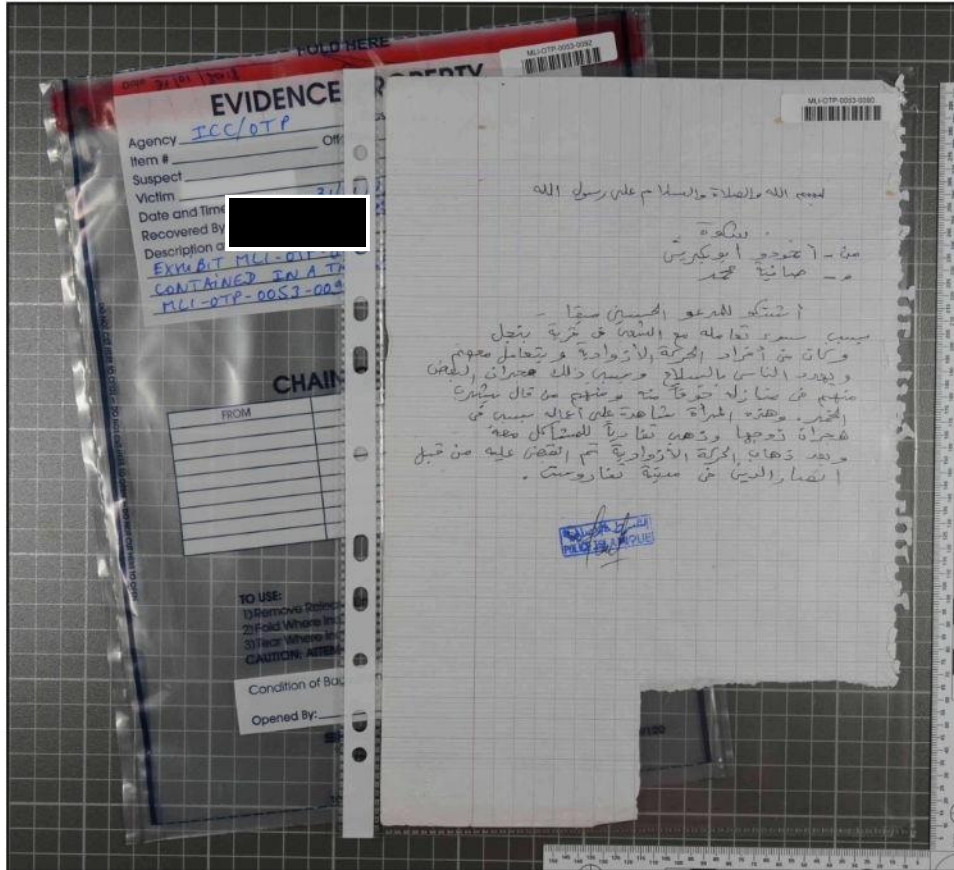 FOLD HERE
MLI-OTP-0053-0092
EVIDENCE
Agency ICC/OTP
Item #
Suspect
Victim
Date and Time
Recovered By
Description
EXHIBIT MLI-OTP-
CONTAINED IN A
MLI-OTP-0053-009
CHAIN
FROM
TO USE:
1) Remove
2) Fold Where
3) Tear Where
CAUTION:
Condition of
Opened By:
MLI-OTP-0053-0090
بسم الله والصلاة والسلام على رسول الله
شكوة
من - أغودو أبو بكرين
و - صافية محمد
أشتكو للمدعو الحسيني
بسبب سوء تعامله مع الشعب في قرية
وكان من أفراد الحركة الأزوادية ويتعامل معهم
ويهدد الناس بالسلاح وسبب ذلك هجران البعض
منهم من منازله خوفاً منه ومنهم من قال يشرب
الخمر. وهذه المرأة شاهدة على أعماله بسبب في
هجران زوجها وذهب تفادياً للمشاكل معه
وبعد ذهاب الحركة الأزوادية تم القبض عليه من قبل
أنصار الدين في مدينة
POLICE ISLAMIQUE